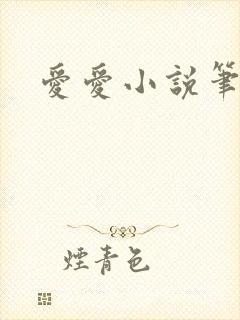 愛愛小說筆
煙青色